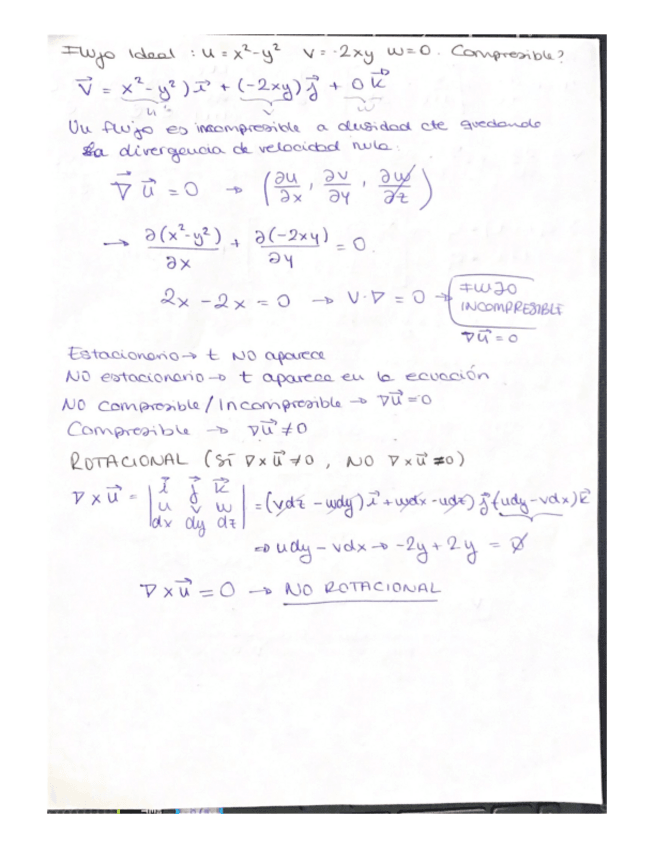 Flujo Ideal : u = x²-y² v = -2xy w=0. Compresible?
V⃗ = x²-y²) i⃗ + (-2xy) j⃗ + 0 k⃗
u v w
Un flujo es incompresible a densidad cte quedando
la divergencia de velocidad nula.
∇⃗ u⃗ = 0 → (∂u/∂x , ∂v/∂y , ∂w/∂z)
→ ∂(x²-y²)/∂x + ∂(-2xy)/∂y = 0.
2x - 2x = 0 → V·∇ = 0 → FLUJO INCOMPRESIBLE
∇u⃗ = 0
Estacionario → t NO aparece
NO estacionario → t aparece en la ecuación
NO compresible / Incompresible → ∇u⃗ = 0
Compresible → ∇u⃗ ≠ 0
ROTACIONAL (SÍ ∇×u⃗ ≠ 0 , NO ∇×u⃗ = 0)
∇×u⃗ = | i⃗ j⃗ k⃗ |
| u v w | = (vdz - wdy) i⃗ + wdx - udz) j⃗ (udy - vdx) k⃗
| dx dy dz |
⇒ udy - vdx → -2y + 2y = 0
∇×u⃗ = 0 → NO ROTACIONAL